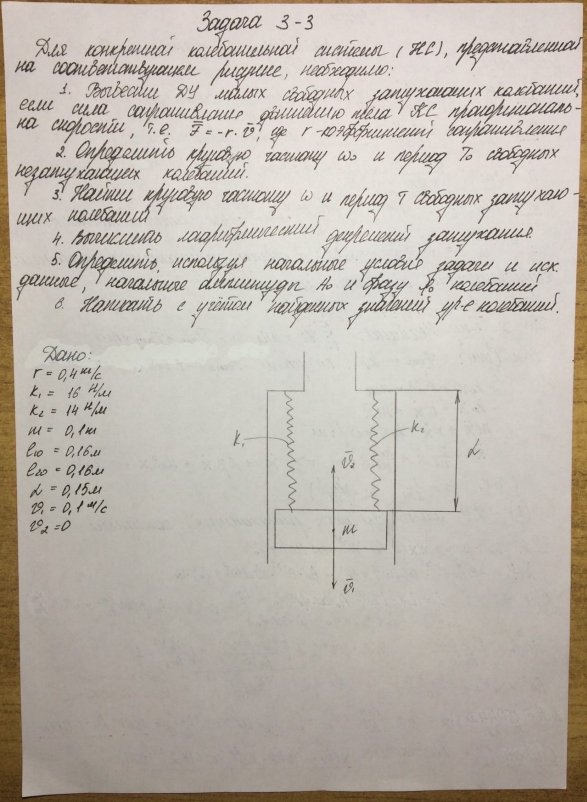 Задача 3-3
Для конкретной колебательной системы (КС), представленной
на соответствующем рисунке, необходимо:
1. Вывести ДУ малых свободных затухающих колебаний,
если сила сопротивления движению тела КС пропорциональ-
на скорости, т.е. F̅ = -r·v̅, где r - коэффициент сопротивления
2. Определить круговую частоту ω₀ и период T₀ свободных
незатухающих колебаний.
3. Найти круговую частоту ω и период T свободных затухаю-
щих колебаний
4. Вычислить логарифмический декремент затухания
5. Определить, используя начальные условия задачи и исх.
данные, начальные амплитуды A₀ и фазу φ₀ колебаний
6. Написать с учётом найденных значений ур-е колебаний.
Дано:
r = 0,4 кг/с
k₁ = 16 Н/м
k₂ = 14 Н/м
m = 0,1 кг
l₁₀ = 0,16 м
l₂₀ = 0,16 м
L = 0,15 м
v₁ = 0,1 м/с
v₂ = 0
k₁
k₂
v̅₂
L
m
v̅₁